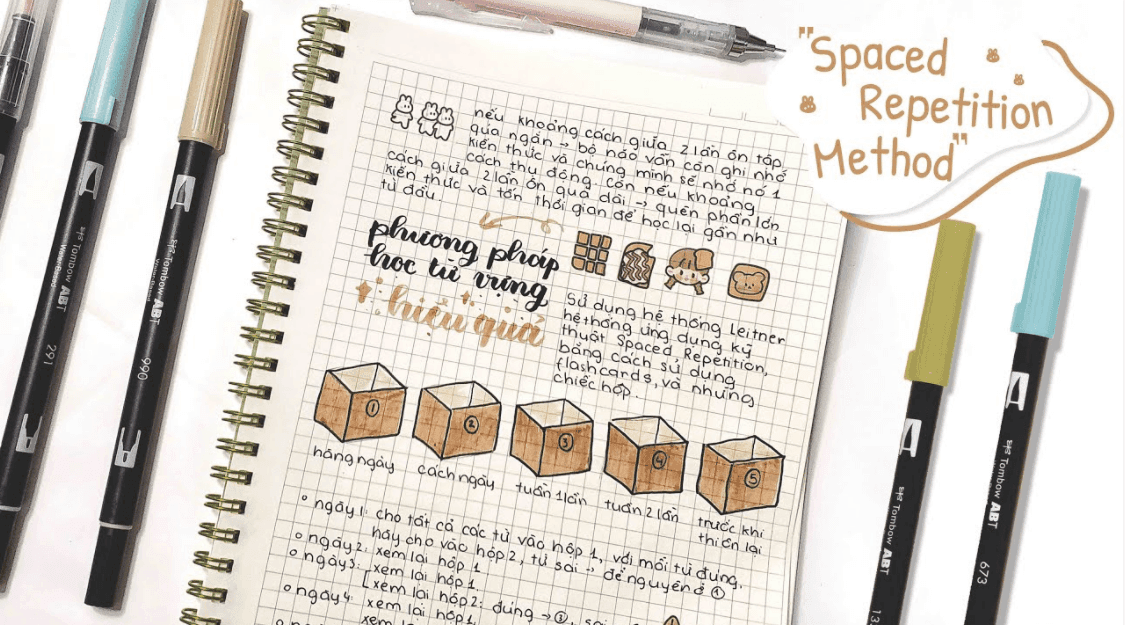 "Spaced
Repetition
Method"
nếu khoảng cách giữa 2 lần ôn tập
quá ngắn → bộ não vẫn còn ghi nhớ
kiến thức và chúng mình sẽ nhớ nó 1
cách thụ động còn nếu khoảng
cách giữa 2 lần ôn quá dài → quên phần lớn
kiến thức và tốn thời gian để học lại gần như
từ đầu.
phương pháp
học từ vựng
hiệu quả
Sử dụng hệ thống Leitner
hệ thống ứng dụng kỹ
thuật Spaced Repetition,
bằng cách sử dụng
flashcards, và những
chiếc hộp.
1
2
3
4
5
hàng ngày
cách ngày
tuần 1 lần
tuần 2 lần
trước khi
thi ôn lại
ngày 1: cho tất cả các từ vào hộp 1, với mỗi từ đúng,
hãy cho vào hộp 2, từ sai → để nguyên ở ①
ngày 2: xem lại hộp 1
ngày 3: xem lại hộp 1
xem lại hộp 2: đúng → ③, sai
ngày 4: xem lại hộp 1
xem lại hộp
Tombow ABT
291
Tombow ABT
990
Tombow ABT
Tombow ABT
673